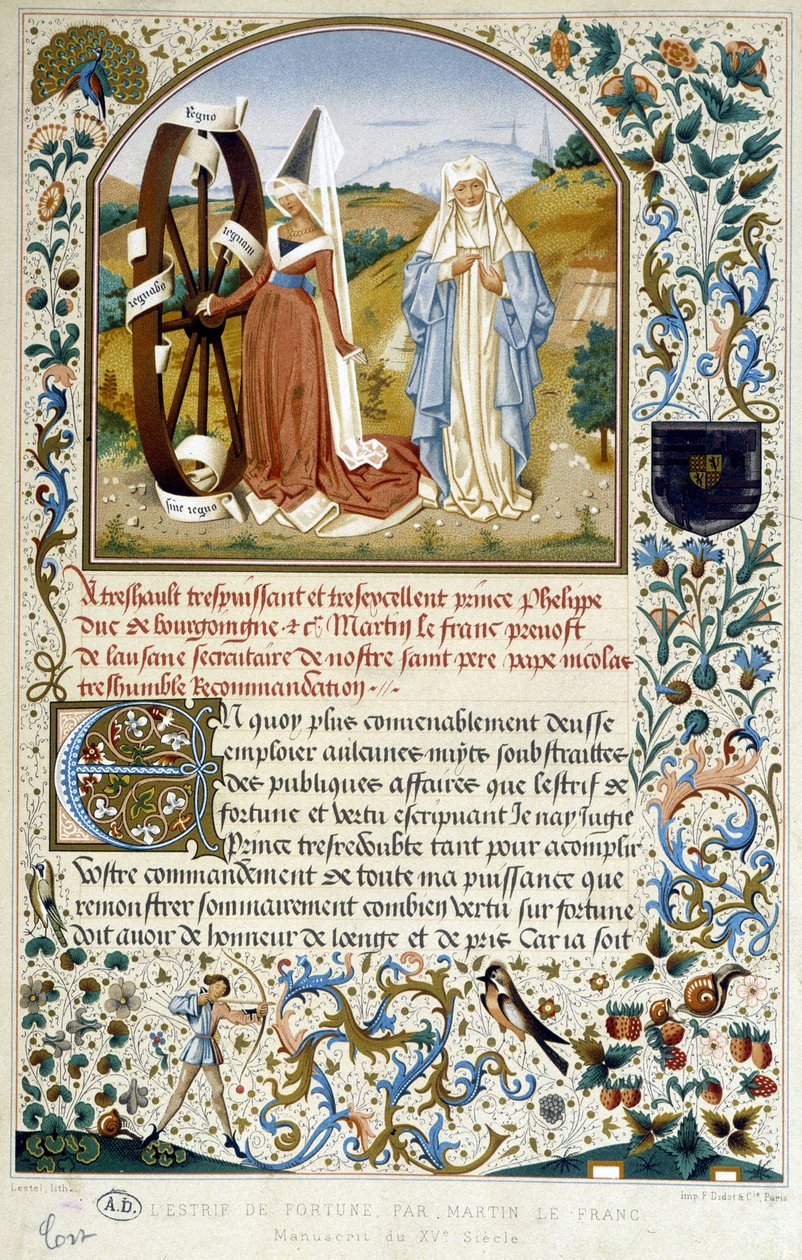 regno
regnavi
regnabo
sine regno
A treshault trespuissant et tresexcellent prince Phelippe
duc de bourgoingne · &c̃ Martin le franc prevost
de lausane secrettaire de nostre saint pere pape nicolas
treshumble Recommandation ·//·
En quoy plus convenablement deusse
emploier aulcunes nuyts soubstraittes
des publiques affaires que lestrif de
fortune et vertu escripvant Je nay Jugie
Prince tresredoubte tant pour acomplir
vostre commandement de toute ma puissance que
remonstrer sommairement combien vertu sur fortune
doit avoir de honneur de loenge et de pris Car ia soit
Lestel, lith.
Imp. F. Didot & Cie, Paris
A.D.
L'ESTRIF DE FORTUNE, PAR MARTIN LE FRANC.
Manuscrit du XVe Siècle.